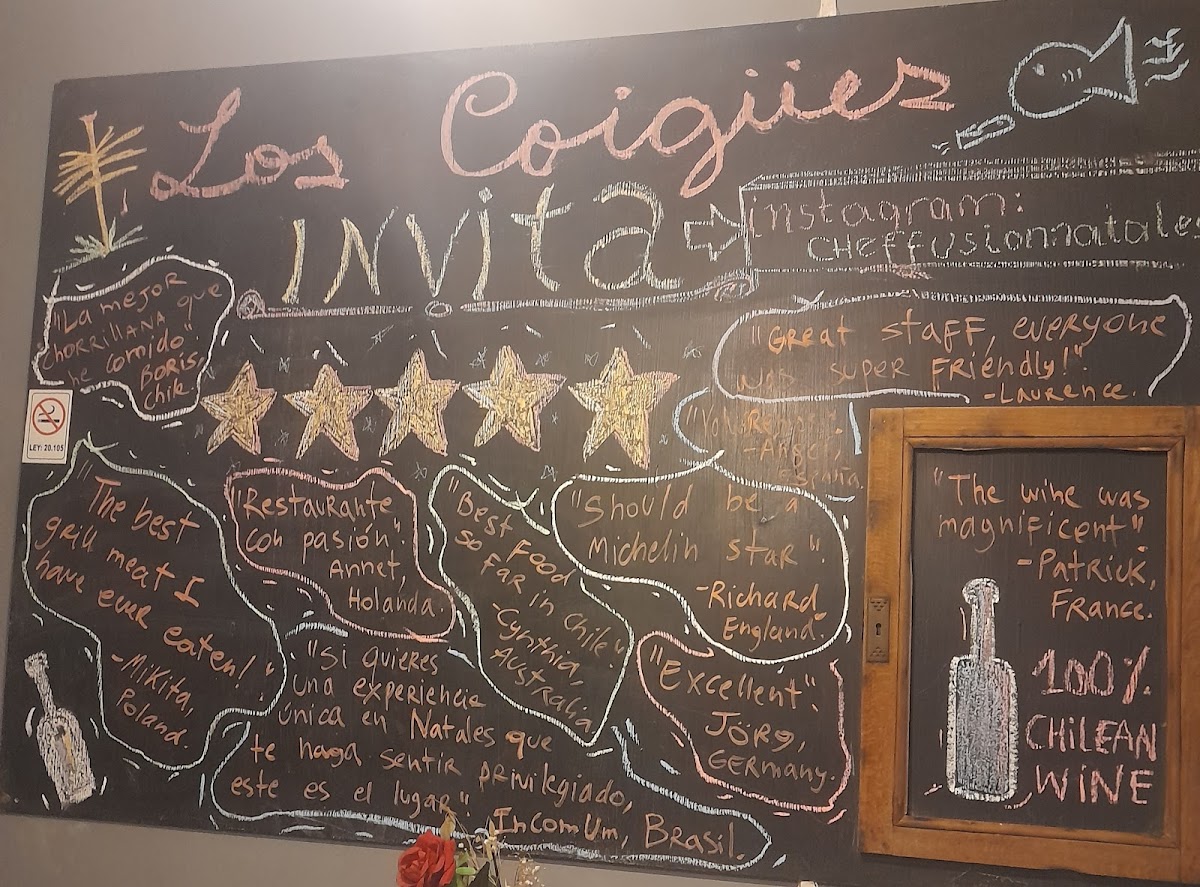 Los Coigües
INVita
instagram:
CHeffusionnatales
"La mejor
chorrillana que
he comido"
Boris,
Chile.
"Great staff, everyone
was super friendly!".
-Laurence.
LEY: 20.105
"The best
grill meat I
have ever eaten!"
-Mikita,
Poland.
"Restaurante
con pasión".
Annet,
Holanda.
"Best food
so far in Chile"
-Cynthia,
Australia
"Should be a
Michelin star".
-Richard,
England.
"Excellent".
Jörg,
Germany.
"Si quieres
una experiencia
única en Natales que
te haga sentir privilegiado,
este es el lugar".
IncomUm, Brasil.
"The wine was
magnificent".
-Patrick,
France.
100%
CHILEAN
WINE